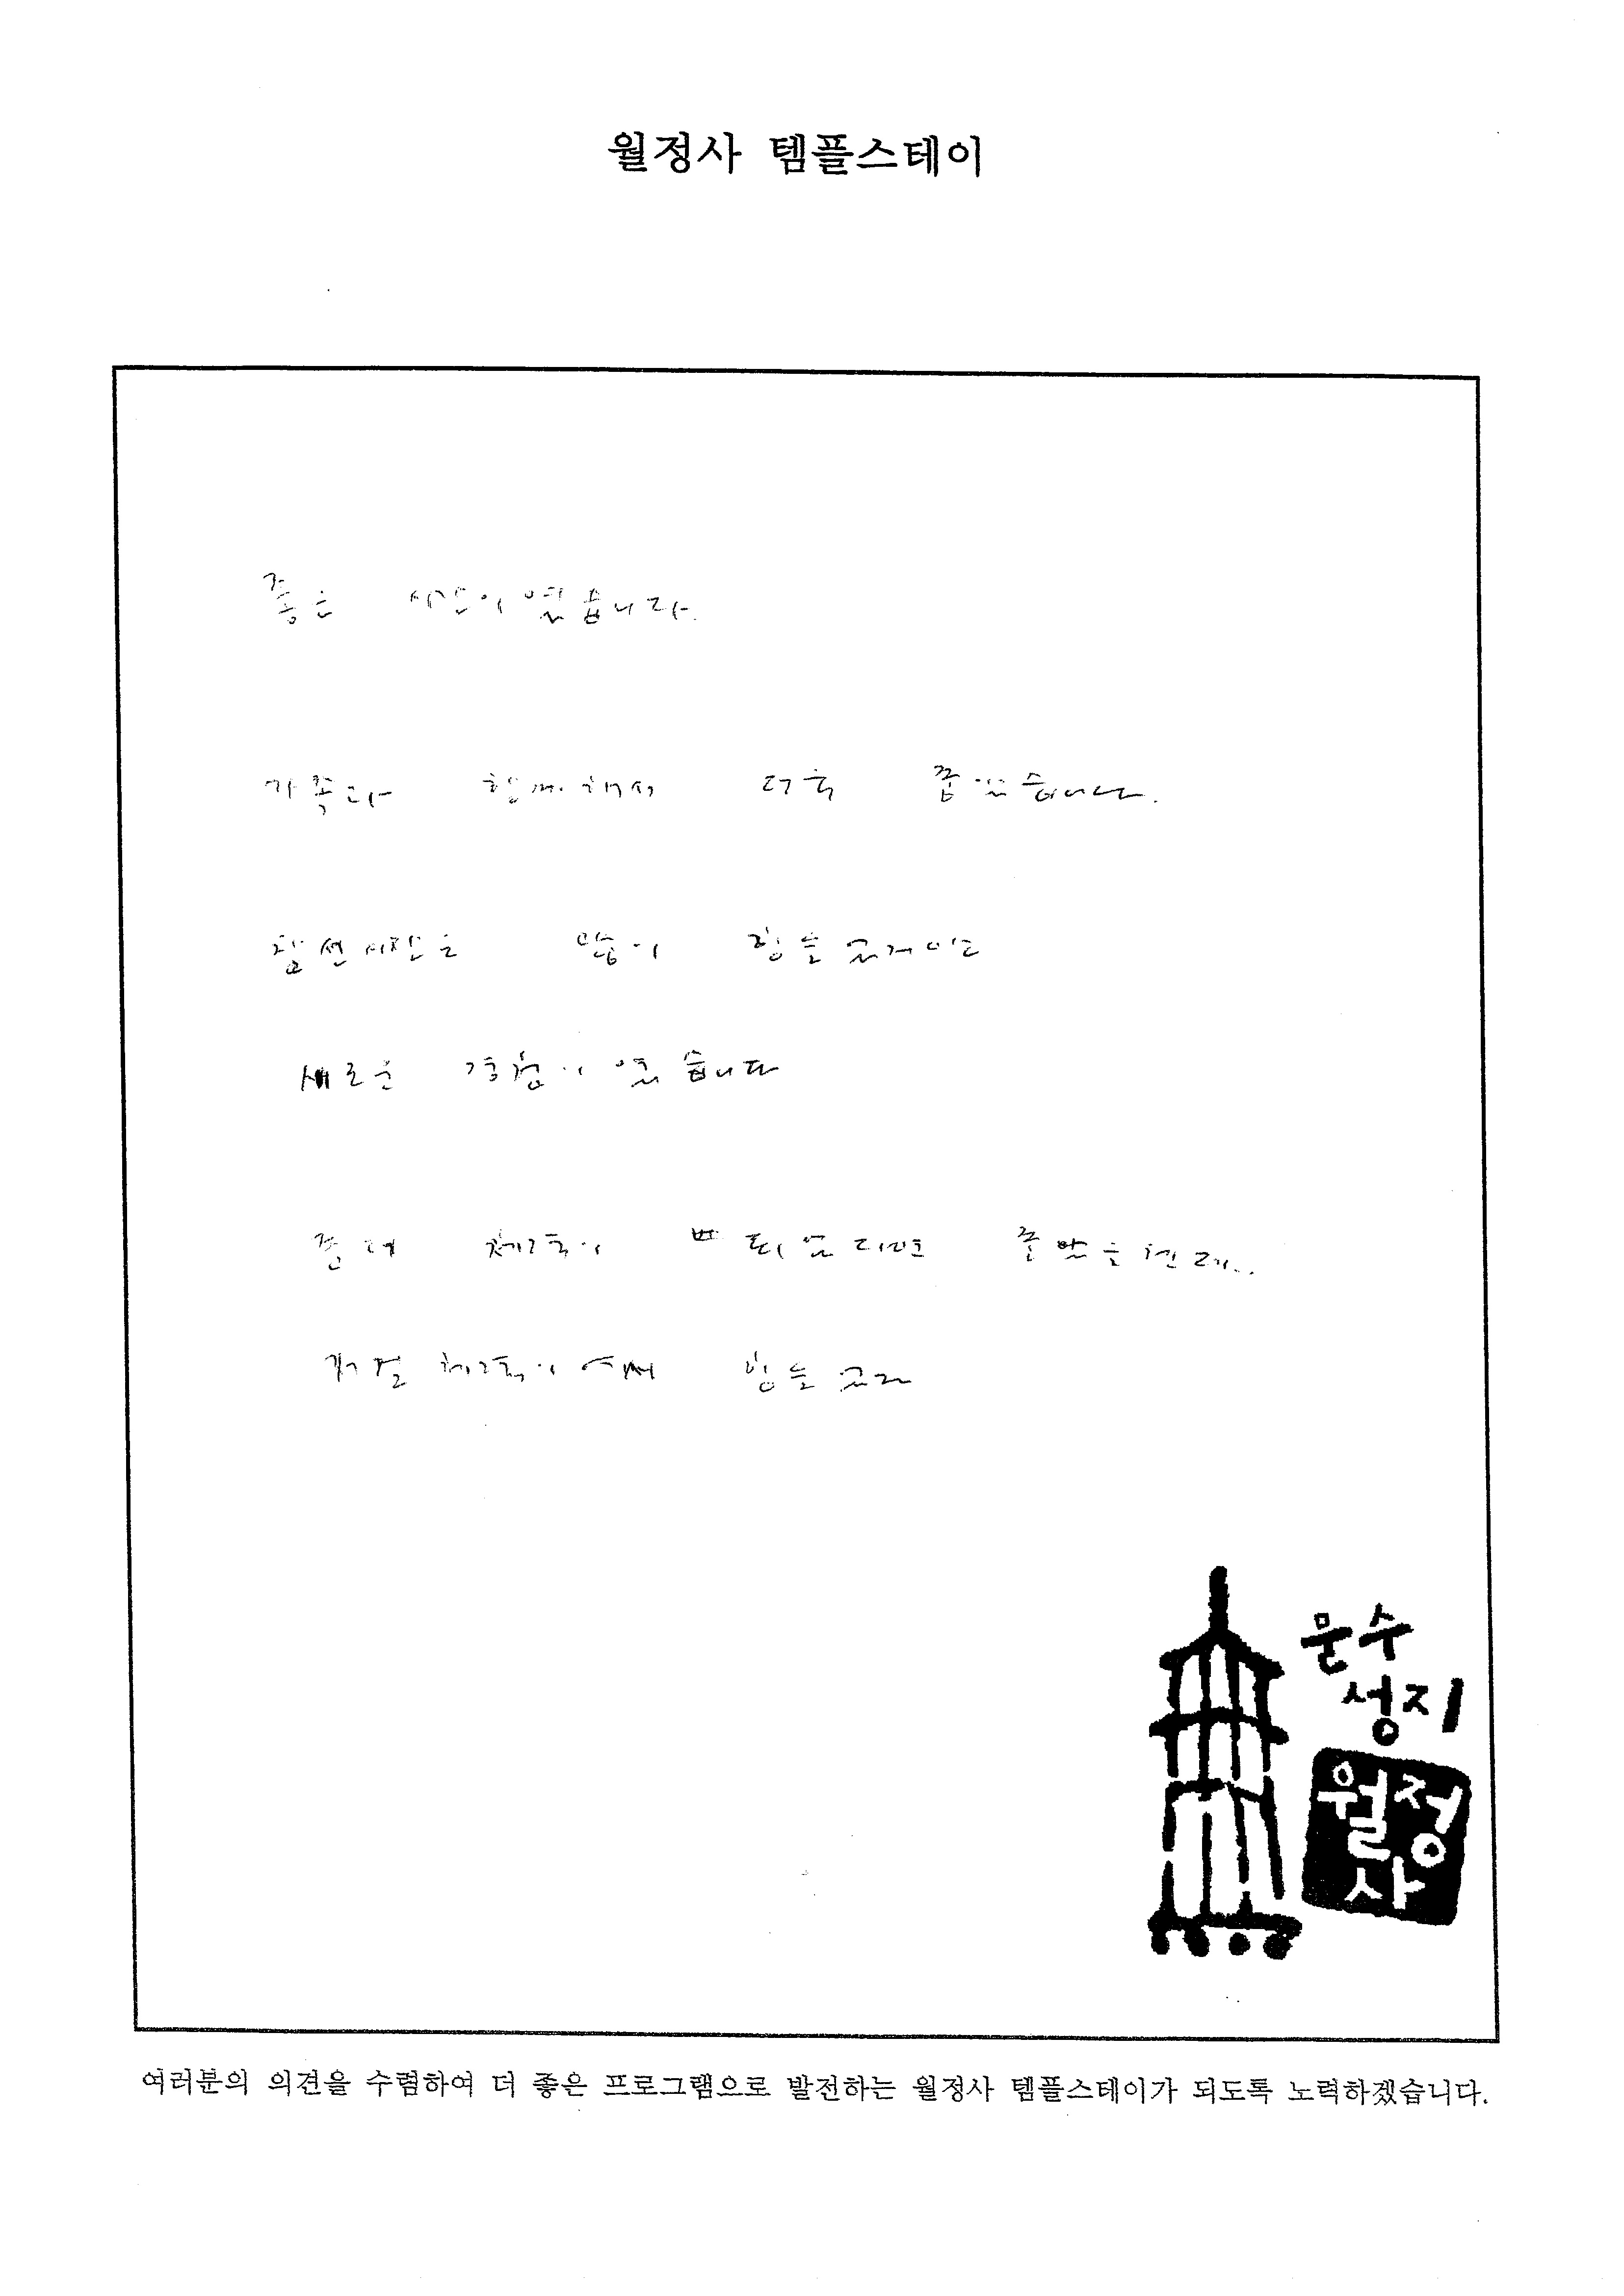 월정사 템플스테이
좋은 시간이었습니다.
가족과 함께해서 더욱 좋았습니다.
참선시간은 많이 힘들었지만
새로운 경험이었습니다
좀더 체력이 뒷받침되면 좋았을텐데..
저질 체력이어서 힘들었고
문수
성지
월정
사
여러분의 의견을 수렴하여 더 좋은 프로그램으로 발전하는 월정사 템플스테이가 되도록 노력하겠습니다.